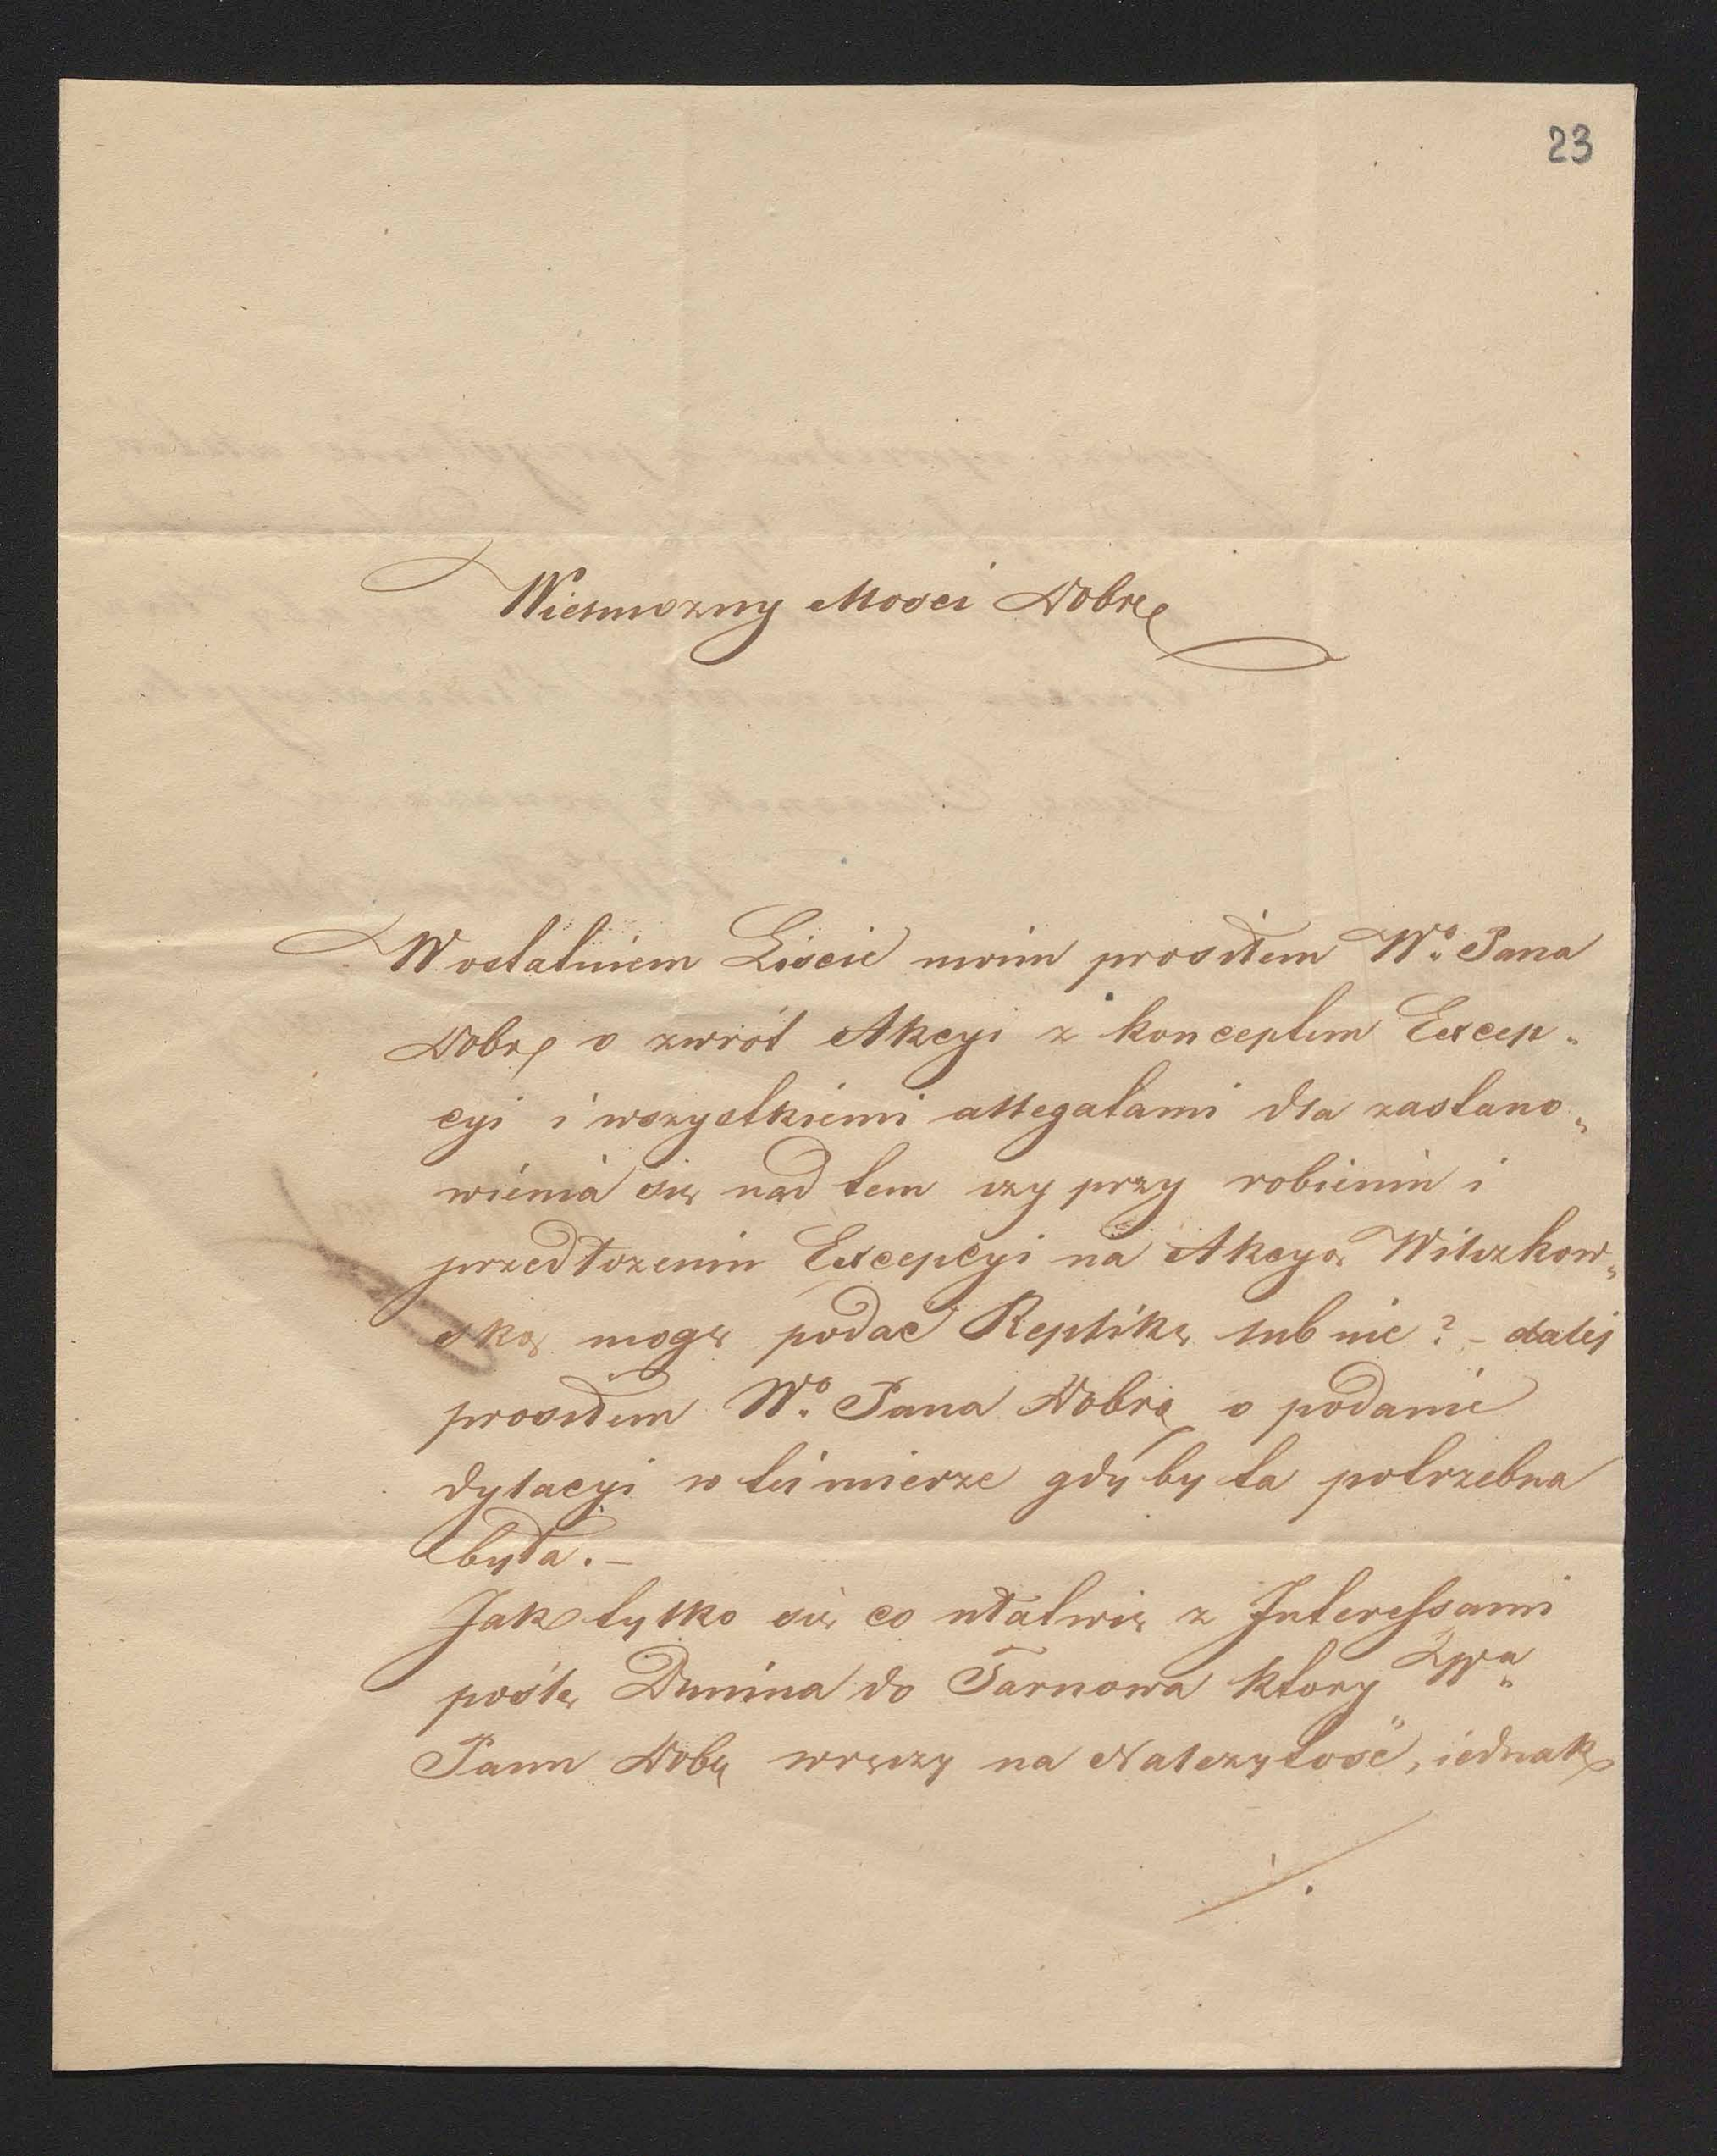 23
Wielmozny Mosci Dobrę
W ostatniem Liscie moim prosiłem Wº Pana
Dobrę o zwrót Akcyi z konceptem Excep„
cyi i wszystkiemi allegatami dla zastano„
wienia się nad tem czy przy robieniu i
przedłozeniu Excepcyi na Akcyą Wilczkow„
ską mogę podać Replikę lub nie? – dalej
prosiłem Wº Pana Dobrę o podanie
dylacyi w tei mierze gdyby ta potrzebna
była. –
Jak tylko się co ułatwię z Interessami
poślę Dunina do Tarnowa ktory
Panu Dobę wręczy na Nalezytość, iednak
./.